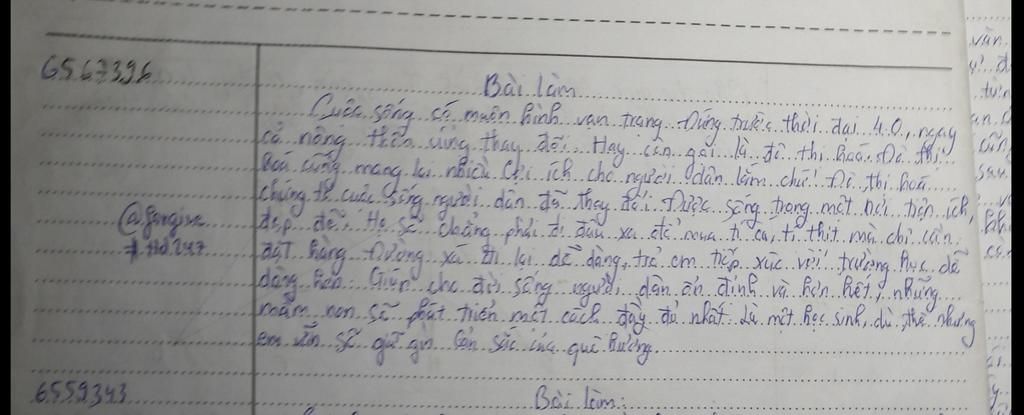 6567396
Bài làm
Cuộc sống có muôn hình vạn trạng. Đứng trước thời đại 4.0, ngay
cả nông thôn cũng thay đổi. Hay còn gọi là đô thị hoá. Đô thị
hoá cũng mang lại nhiều lợi ích cho người dân lắm chứ! Đô thị hoá
chứng tỏ cuộc sống người dân đã thay đổi. Được sống trong một nơi tiện ích,
đẹp đẽ. Họ sẽ chẳng phải đi đâu xa để mua tí cá, tí thịt mà chỉ cần
đặt hàng. Đường xá đi lại dễ dàng, trẻ em tiếp xúc với trường học dễ
dàng hơn. Giúp cho đời sống người dân ổn định và hơn hết, những
mầm non sẽ phát triển một cách đầy đủ nhất. Là một học sinh, dù thế nhưng
em vẫn sẽ giữ gìn bản sắc của quê hương.
6559343
Bài làm: